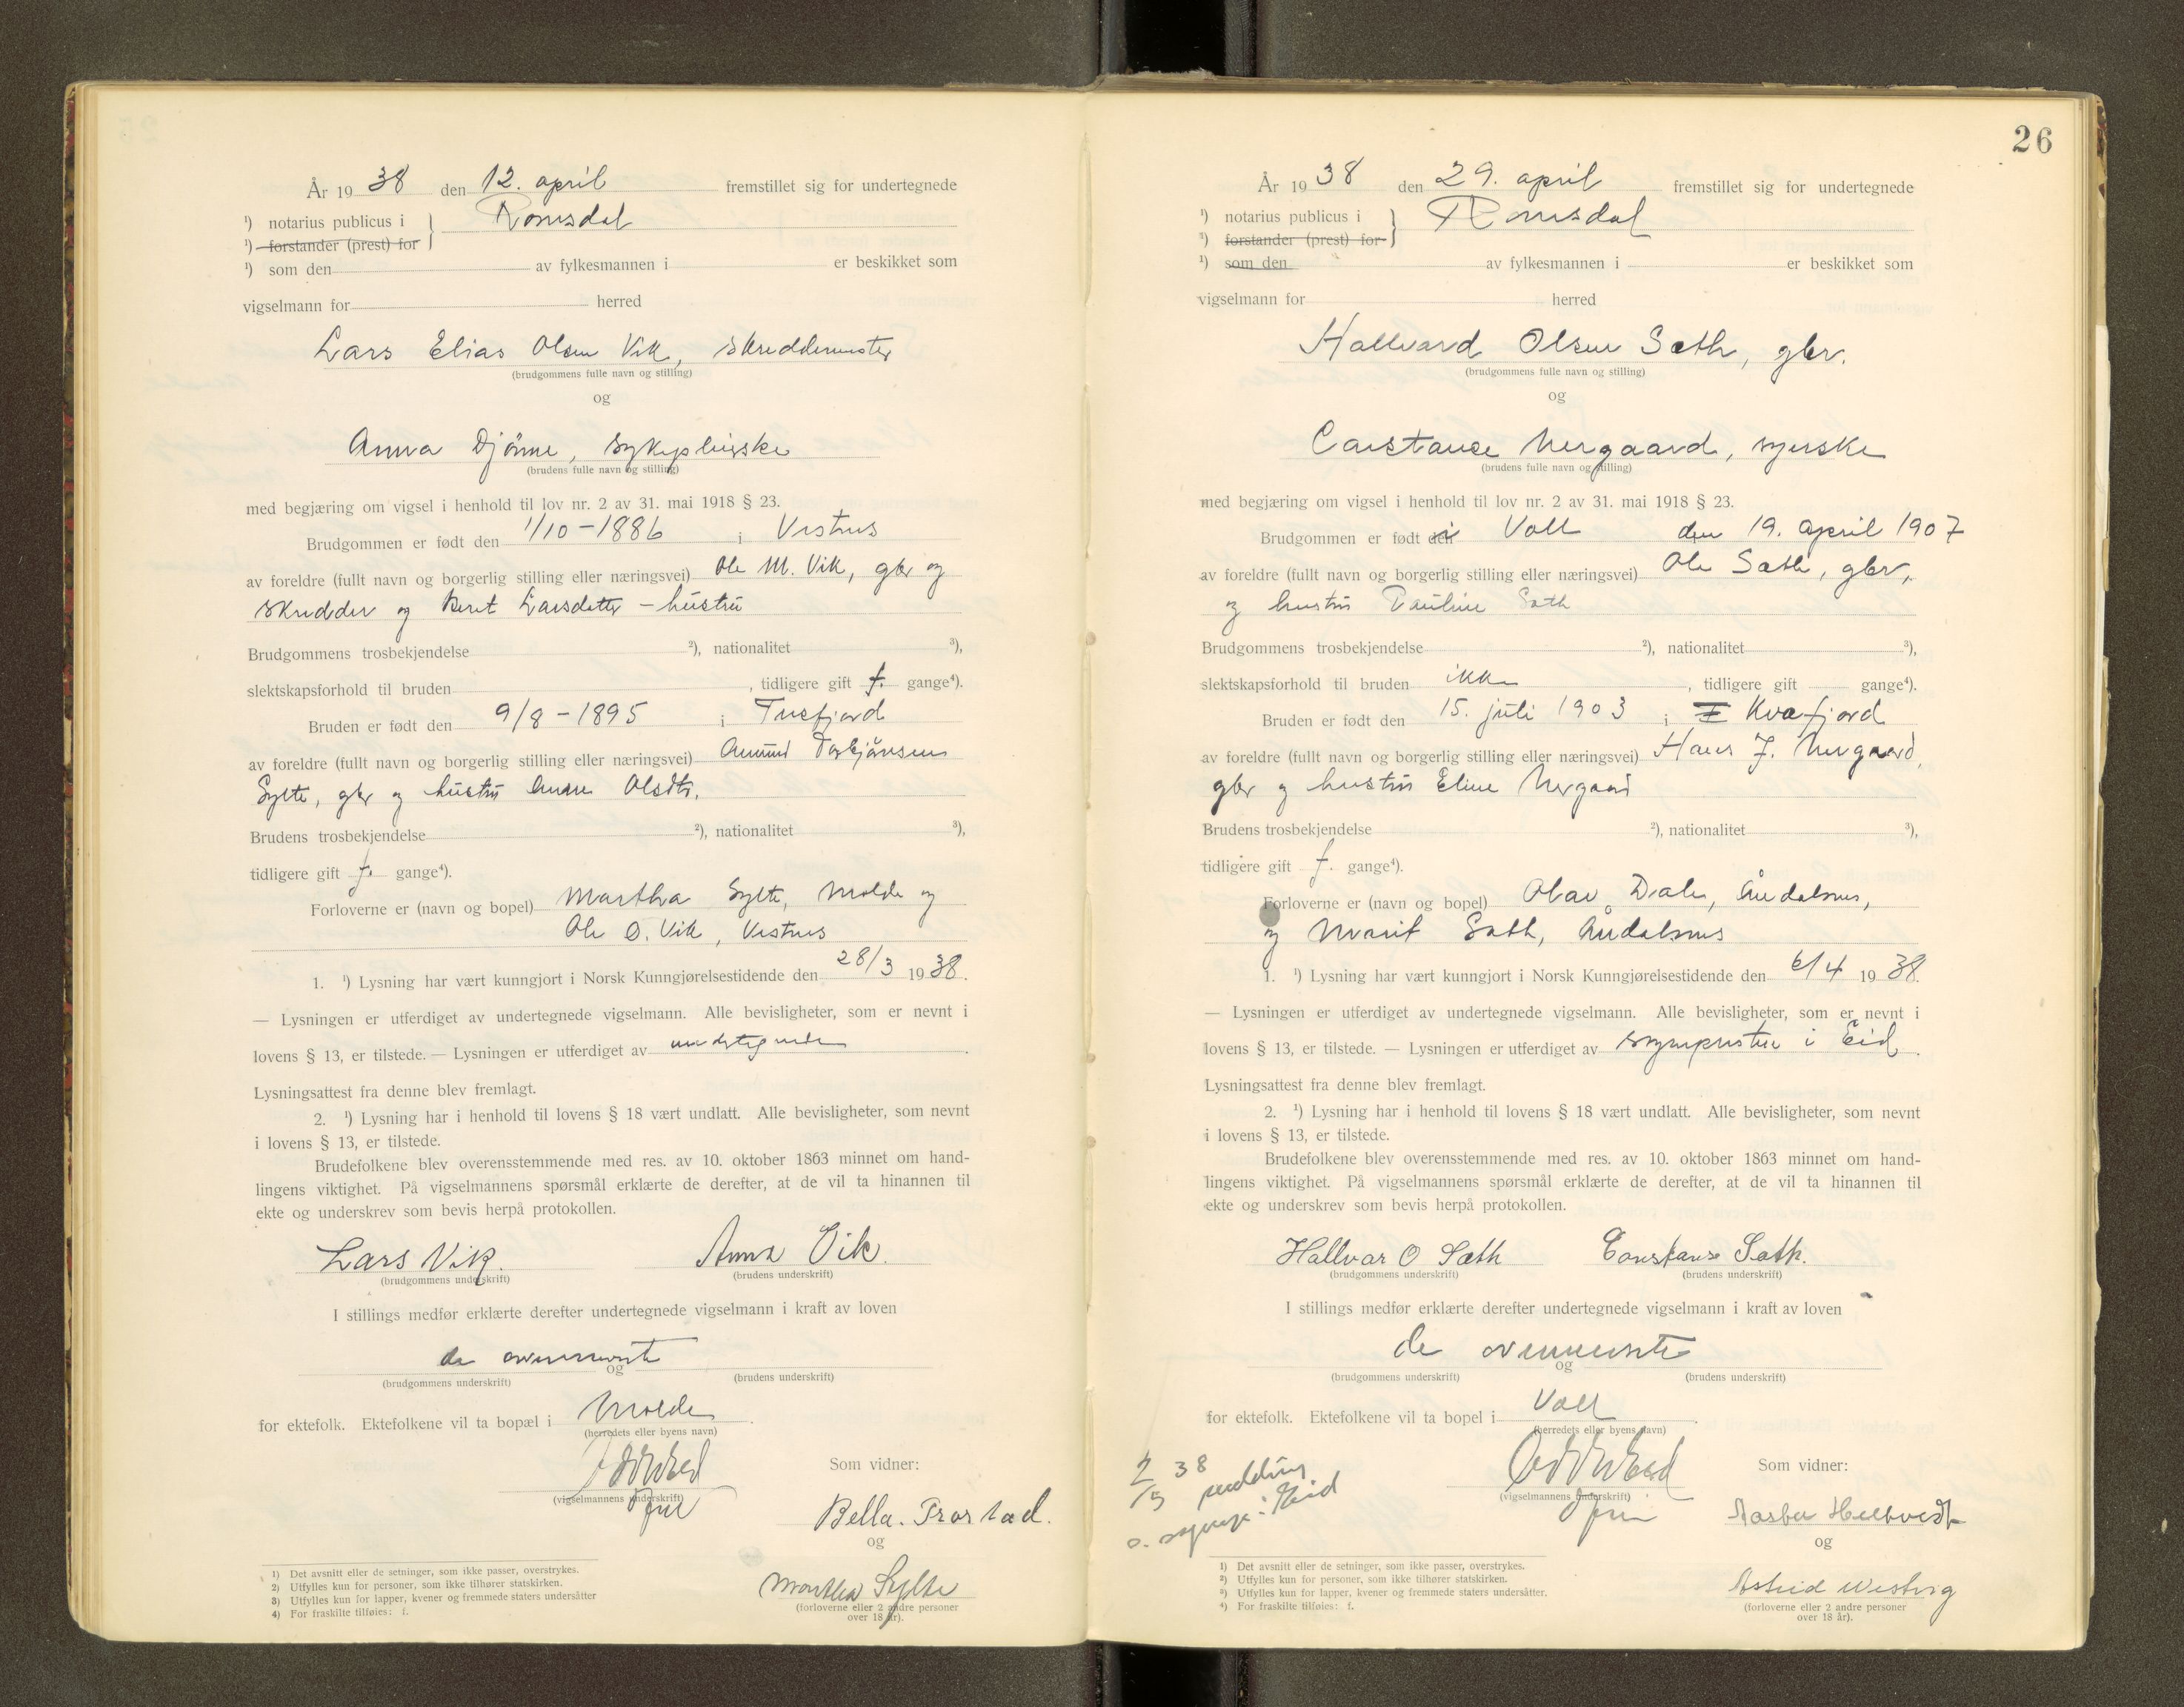 År 19 38 den 12. april fremstillet sig for undertegnede
¹) notarius publicus i } Romsdal
¹) forstander (prest) for
¹) som den av fylkesmannen i er beskikket som
vigselmann for herred
Lars Elias Olsen Vik, skreddermester
(brudgommens fulle navn og stilling)
og
Anna Djönne, sykepleierske
(brudens fulle navn og stilling)
med begjæring om vigsel i henhold til lov nr. 2 av 31. mai 1918 § 23.
Brudgommen er født den 1/10-1886 i Vestnes
av foreldre (fullt navn og borgerlig stilling eller næringsvei) Ole M. Vik, gbr og
skredder og Beret Larsdatter - hustru
Brudgommens trosbekjendelse ²), nationalitet ³),
slektskapsforhold til bruden , tidligere gift f. gange⁴).
Bruden er født den 9/8-1895 i Tresfjord
av foreldre (fullt navn og borgerlig stilling eller næringsvei) Amund Torbjörnsen
Sylte, gbr og hustru Anne Olsdtr.
Brudens trosbekjendelse ²), nationalitet ³),
tidligere gift f. gange⁴).
Forloverne er (navn og bopel) Martha Sylte, Molde og
Ole O. Vik, Vestnes
1. ¹) Lysning har vært kunngjort i Norsk Kunngjørelsestidende den 28/3 19 38.
— Lysningen er utferdiget av undertegnede vigselmann. Alle bevisligheter, som er nevnt i
lovens § 13, er tilstede. — Lysningen er utferdiget av undertegnede.
Lysningsattest fra denne blev fremlagt.
2. ¹) Lysning har i henhold til lovens § 18 vært undlatt. Alle bevisligheter, som nevnt
i lovens § 13, er tilstede.
Brudefolkene blev overensstemmende med res. av 10. oktober 1863 minnet om hand-
lingens viktighet. På vigselmannens spørsmål erklærte de derefter, at de vil ta hinannen til
ekte og underskrev som bevis herpå protokollen.
Lars Vik. Anna Vik.
(brudgommens underskrift) (brudens underskrift)
I stillings medfør erklærte derefter undertegnede vigselmann i kraft av loven
de ovennevnte
og
(brudgommens underskrift) (brudens underskrift)
for ektefolk. Ektefolkene vil ta bopæl i Molde.
(herredets eller byens navn)
Som vidner:
(vigselmannens underskrift)
Bella. Trostad.
og
Martha Sylte
(forloverne eller 2 andre personer
over 18 år).
1) Det avsnitt eller de setninger, som ikke passer, overstrykes.
2) Utfylles kun for personer, som ikke tilhører statskirken.
3) Utfylles kun for lapper, kvener og fremmede staters undersåtter
4) For fraskilte tilføies: f.
26
År 19 38 den 29. april fremstillet sig for undertegnede
¹) notarius publicus i } Romsdal
¹) forstander (prest) for
¹) som den av fylkesmannen i er beskikket som
vigselmann for herred
Hallvard Olsen Sæth, gbr.
(brudgommens fulle navn og stilling)
og
Constance Nergaard, syerske
(brudens fulle navn og stilling)
med begjæring om vigsel i henhold til lov nr. 2 av 31. mai 1918 § 23.
Brudgommen er født i Voll den 19. april 1907
av foreldre (fullt navn og borgerlig stilling eller næringsvei) Ole Sæth, gbr,
og hustru Pauline Sæth
Brudgommens trosbekjendelse ²), nationalitet ³),
slektskapsforhold til bruden ikke , tidligere gift gange⁴).
Bruden er født den 15. juli 1903 i Kvæfjord
av foreldre (fullt navn og borgerlig stilling eller næringsvei) Hans J. Nergaard,
gbr og hustru Eline Nergaard
Brudens trosbekjendelse ²), nationalitet ³),
tidligere gift f. gange⁴).
Forloverne er (navn og bopel) Olav Dale, Åndalsnes,
og Marit Sæth, Åndalsnes
1. ¹) Lysning har vært kunngjort i Norsk Kunngjørelsestidende den 6/4 19 38.
— Lysningen er utferdiget av undertegnede vigselmann. Alle bevisligheter, som er nevnt i
lovens § 13, er tilstede. — Lysningen er utferdiget av sognepresten i Eid.
Lysningsattest fra denne blev fremlagt.
2. ¹) Lysning har i henhold til lovens § 18 vært undlatt. Alle bevisligheter, som nevnt
i lovens § 13, er tilstede.
Brudefolkene blev overensstemmende med res. av 10. oktober 1863 minnet om hand-
lingens viktighet. På vigselmannens spørsmål erklærte de derefter, at de vil ta hinannen til
ekte og underskrev som bevis herpå protokollen.
Hallvar O Sæth Constanse Sæth.
(brudgommens underskrift) (brudens underskrift)
I stillings medfør erklærte derefter undertegnede vigselmann i kraft av loven
de ovennevnte
og
(brudgommens underskrift) (brudens underskrift)
for ektefolk. Ektefolkene vil ta bopel i Voll.
(herredets eller byens navn)
2/5 38 melding
i Eid
Som vidner:
(vigselmannens underskrift)
og
Astrid
(forloverne eller 2 andre personer
over 18 år).
1) Det avsnitt eller de setninger, som ikke passer, overstrykes.
2) Utfylles kun for personer, som ikke tilhører statskirken.
3) Utfylles kun for lapper, kvener og fremmede staters undersåtter.
4) For fraskilte tilføies: f.